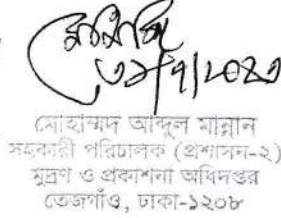 ৩১/৭/২০২৩
মোহাম্মদ আব্দুল মান্নান
সহকারী পরিচালক (প্রশাসন-২)
মুদ্রণ ও প্রকাশনা অধিদপ্তর
তেজগাঁও, ঢাকা-১২০৮